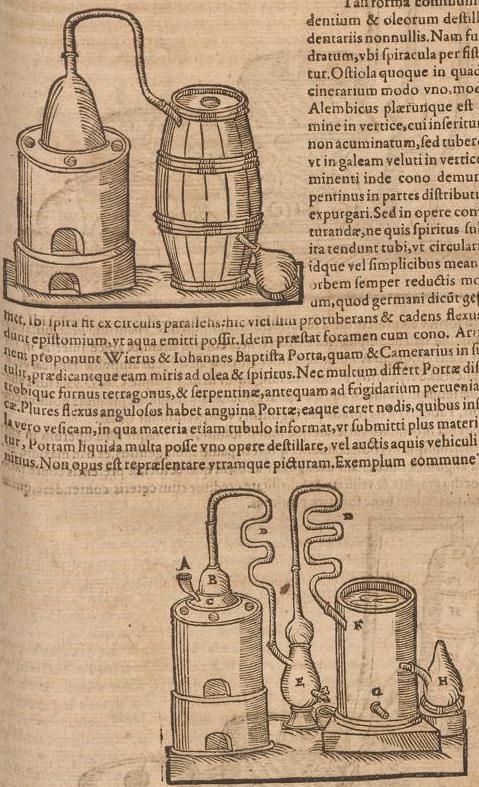 dentium & oleorum deſtill
dentariis nonnullis. Nam fu
dratum, vbi ſpiracula per fiſt
tur. Oſtiola quoque in quad
cinerarium modo vno, mod
Alembicus plærunque eſt
mine in vertice, cui inſeritur
non acuminatum, ſed tubero
vt in galeam veluti in vertice
minenti inde cono demur
pentinus in partes diſtributu
expurgari. Sed in opere con
turandæ, ne quis ſpiritus ſub
ita tendunt tubi, vt circulari
idque vel ſimplicibus mean
orbem ſemper reductis mo
um, quod germani dicūt geſ
Ibi ſpira fit ex circulis parallelis: hic viciſſim protuberans & cadens flexus
dunt epiſtomium, vt aqua emitti poſſit. Idem præſtat foramen cum cono. Arc
nem proponunt Wierus & Iohannes Baptiſta Porta, quam & Camerarius in ſu
tulit, prædicantque eam miris ad olea & ſpiritus. Nec multum differt Portæ diſ
trobique furnus tetragonus, & ſerpentinæ, antequam ad frigidarium peruenia
cæ. Plures flexus anguloſos habet anguina Portæ; eaque caret nodis, quibus inſ
la vero veſicam, in qua materia etiam tubulo informat, vt ſubmitti plus materi
tur, Portam liquida multa poſſe vno opere deſtillare, vel auctis aquis vehiculi
nitius. Non opus eſt repræſentare vtramque picturam. Exemplum commune
A
B
C
D
D
E
F
G
H